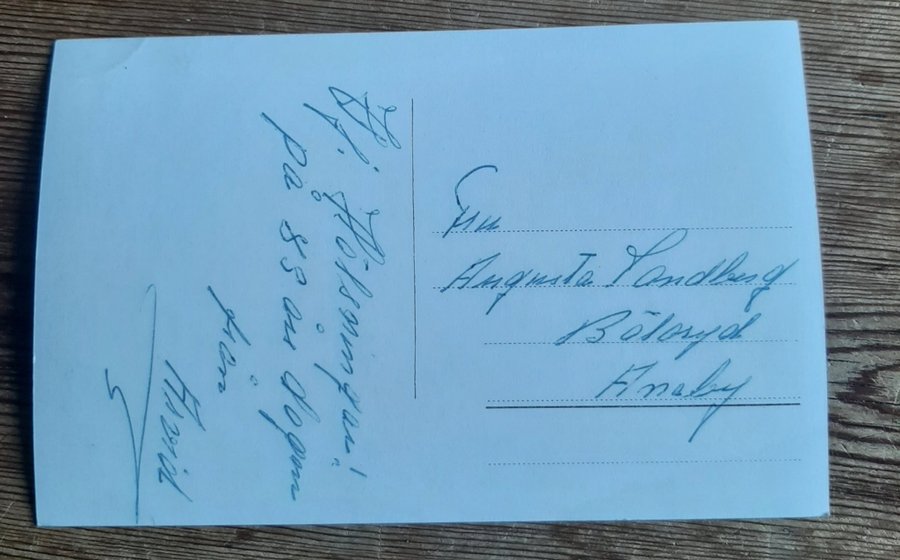 Hj. Hälsningar!
på 85 års dagen
från
Arvid
Fru
Augusta Sandberg
Bälaryd
Aneby